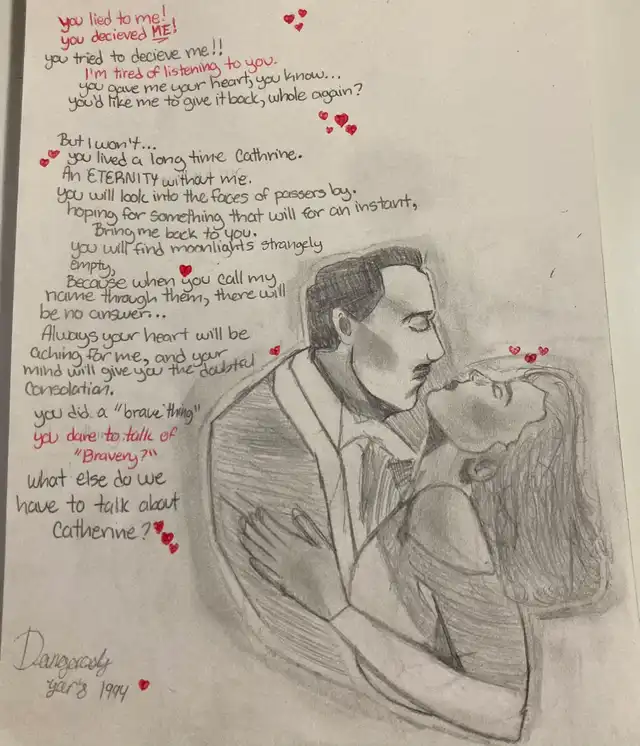 you lied to me!
you decieved ME!
you tried to decieve me!!
I'm tired of listening to you.
you gave me your heart, you know...
you'd like me to give it back, whole again?
But I won't...
you lived a long time Cathrine.
An ETERNITY without me.
you will look into the faces of passers by.
hoping for something that will for an instant,
Bring me back to you.
you will find moonlights strangely
empty,
Because when you call my
name through them, there will
be no answer...
Always your heart will be
aching for me, and your
mind will give you the doubtful
consolation.
you did a "brave thing"
you dare to talk of
"Bravery?"
what else do we
have to talk about
Catherine?
Dangerously
yours 1994